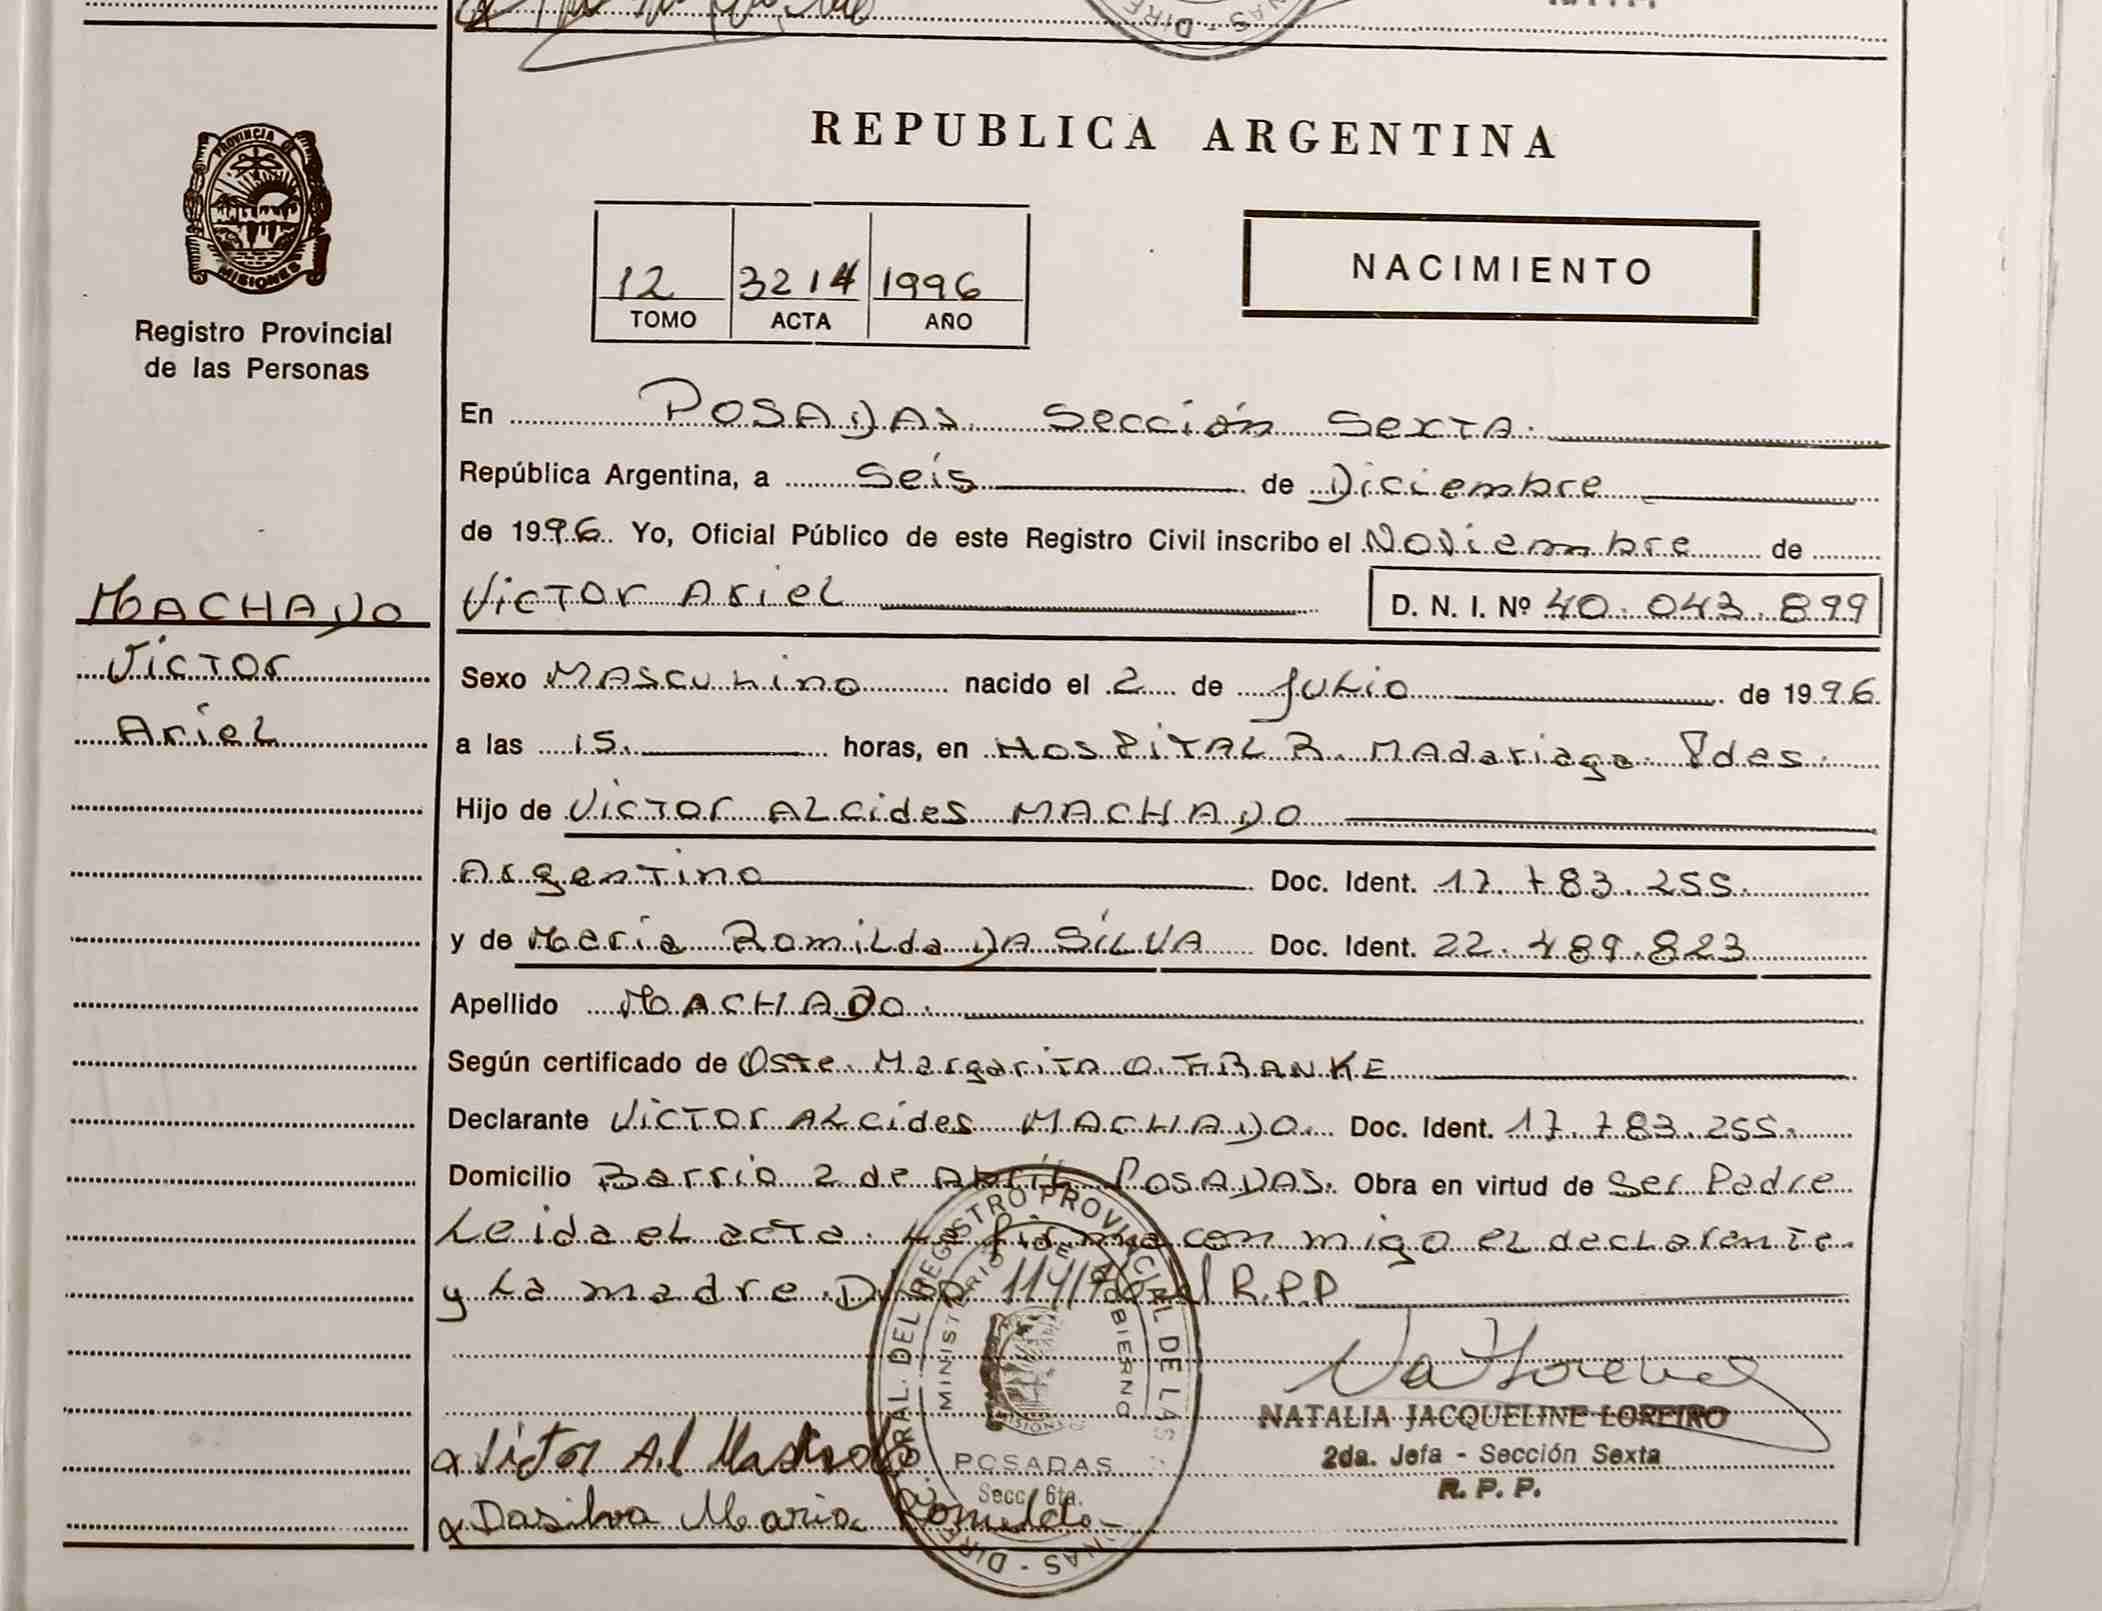 REPUBLICA ARGENTINA
PROVINCIA DE
MISIONES
Registro Provincial
de las Personas
12 3214 1996
TOMO ACTA AÑO
NACIMIENTO
En POSADAS. Sección Sexta.
República Argentina, a Seis de Diciembre
de 1996. Yo, Oficial Público de este Registro Civil inscribo el Noviembre de
Victor Ariel D. N. I. Nº 40.043.899
MACHADO
Victor
Ariel
Sexo Masculino nacido el 2 de Julio de 1996.
a las 15. horas, en Hospital R. Madariaga Pdas.
Hijo de Victor Alcides MACHADO
Argentino Doc. Ident. 17.783.255.
y de Maria Romilda DA SILVA Doc. Ident. 22.489.823
Apellido MACHADO.
Según certificado de Oste. Margarita O. FRANKE
Declarante Victor Alcides MACHADO. Doc. Ident. 17.783.255.
Domicilio Barrio 2 de Abril POSADAS. Obra en virtud de Ser Padre
Leida el acta. La firma con migo el declarente
y La madre. R.P.P
NATALIA JACQUELINE LOREIRO
2da. Jefa - Sección Sexta
R. P. P.
Victor A.l Machado
Dasilva Maria Romilda
REGISTRO PROVINCIAL DE LAS
POSADAS
Secc. 6ta.